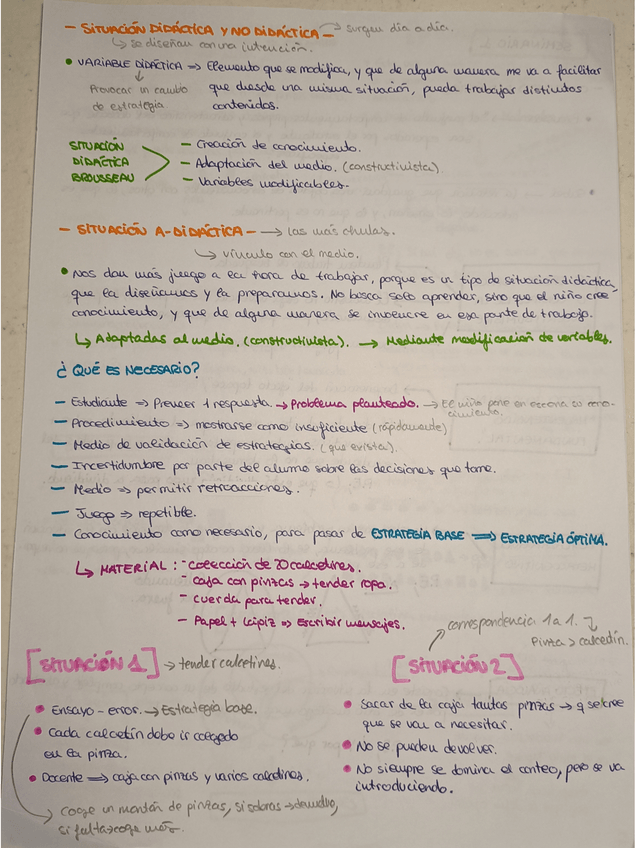 - SITUACIÓN DIDÁCTICA Y NO DIDÁCTICA - → surgen día a día.
↳ se diseñan con una intención.
• VARIABLE DIDÁCTICA ⇒ Elemento que se modifica, y que de alguna manera me va a facilitar
↓
Provocar un cambio que desde una misma situación, pueda trabajar distintos
de estrategia contenidos.
SITUACIÓN - Creación de conocimiento.
DIDÁCTICA - Adaptación del medio. (constructivista)
BROUSSEAU - Variables modificables.
- SITUACIÓN A-DIDÁCTICA - → las más chulas.
↳ vínculo con el medio.
• Nos dan más juego a la hora de trabajar, porque es un tipo de situación didáctica,
que la diseñamos y la preparamos. No busca solo aprender, sino que el niño cree
conocimiento, y que de alguna manera se involucre en esa parte de trabajo.
↳ Adaptadas al medio. (constructivista). → Mediante modificación de variables.
¿QUÉ ES NECESARIO?
- Estudiante ⇒ Preveer 1 respuesta. → Problema planteado. → El niño pone en escena su cono-
cimiento.
- Procedimiento ⇒ mostrarse como insuficiente (rápidamente)
- Medio de validación de estrategias. (que exista).
- Incertidumbre por parte del alumno sobre las decisiones que tome.
- Medio ⇒ permitir retroacciones.
- Juego ⇒ repetible.
- Conocimiento como necesario, para pasar de ESTRATEGIA BASE ⇒ ESTRATEGIA ÓPTIMA.
↳ MATERIAL: - colección de 20 calcetines.
- caja con pinzas → tender ropa.
- cuerda para tender.
- Papel + lápiz ⇒ Escribir mensajes.
correspondencia 1 a 1. ↴
Pinza > calcetín.
[SITUACIÓN 1] → tender calcetines.
• Ensayo-error. → Estrategia base.
• Cada calcetín debe ir colgado
en la pinza.
• Docente ⇒ caja con pinzas y varios calcetines.
→ coge un montón de pinzas, si sobras → devuelve,
si falta > coge más.
[SITUACIÓN 2]
• Sacar de la caja tantas pinzas → q se cree
que se van a necesitar.
• No se pueden devolver.
• No siempre se domina el conteo, pero se va
introduciendo.